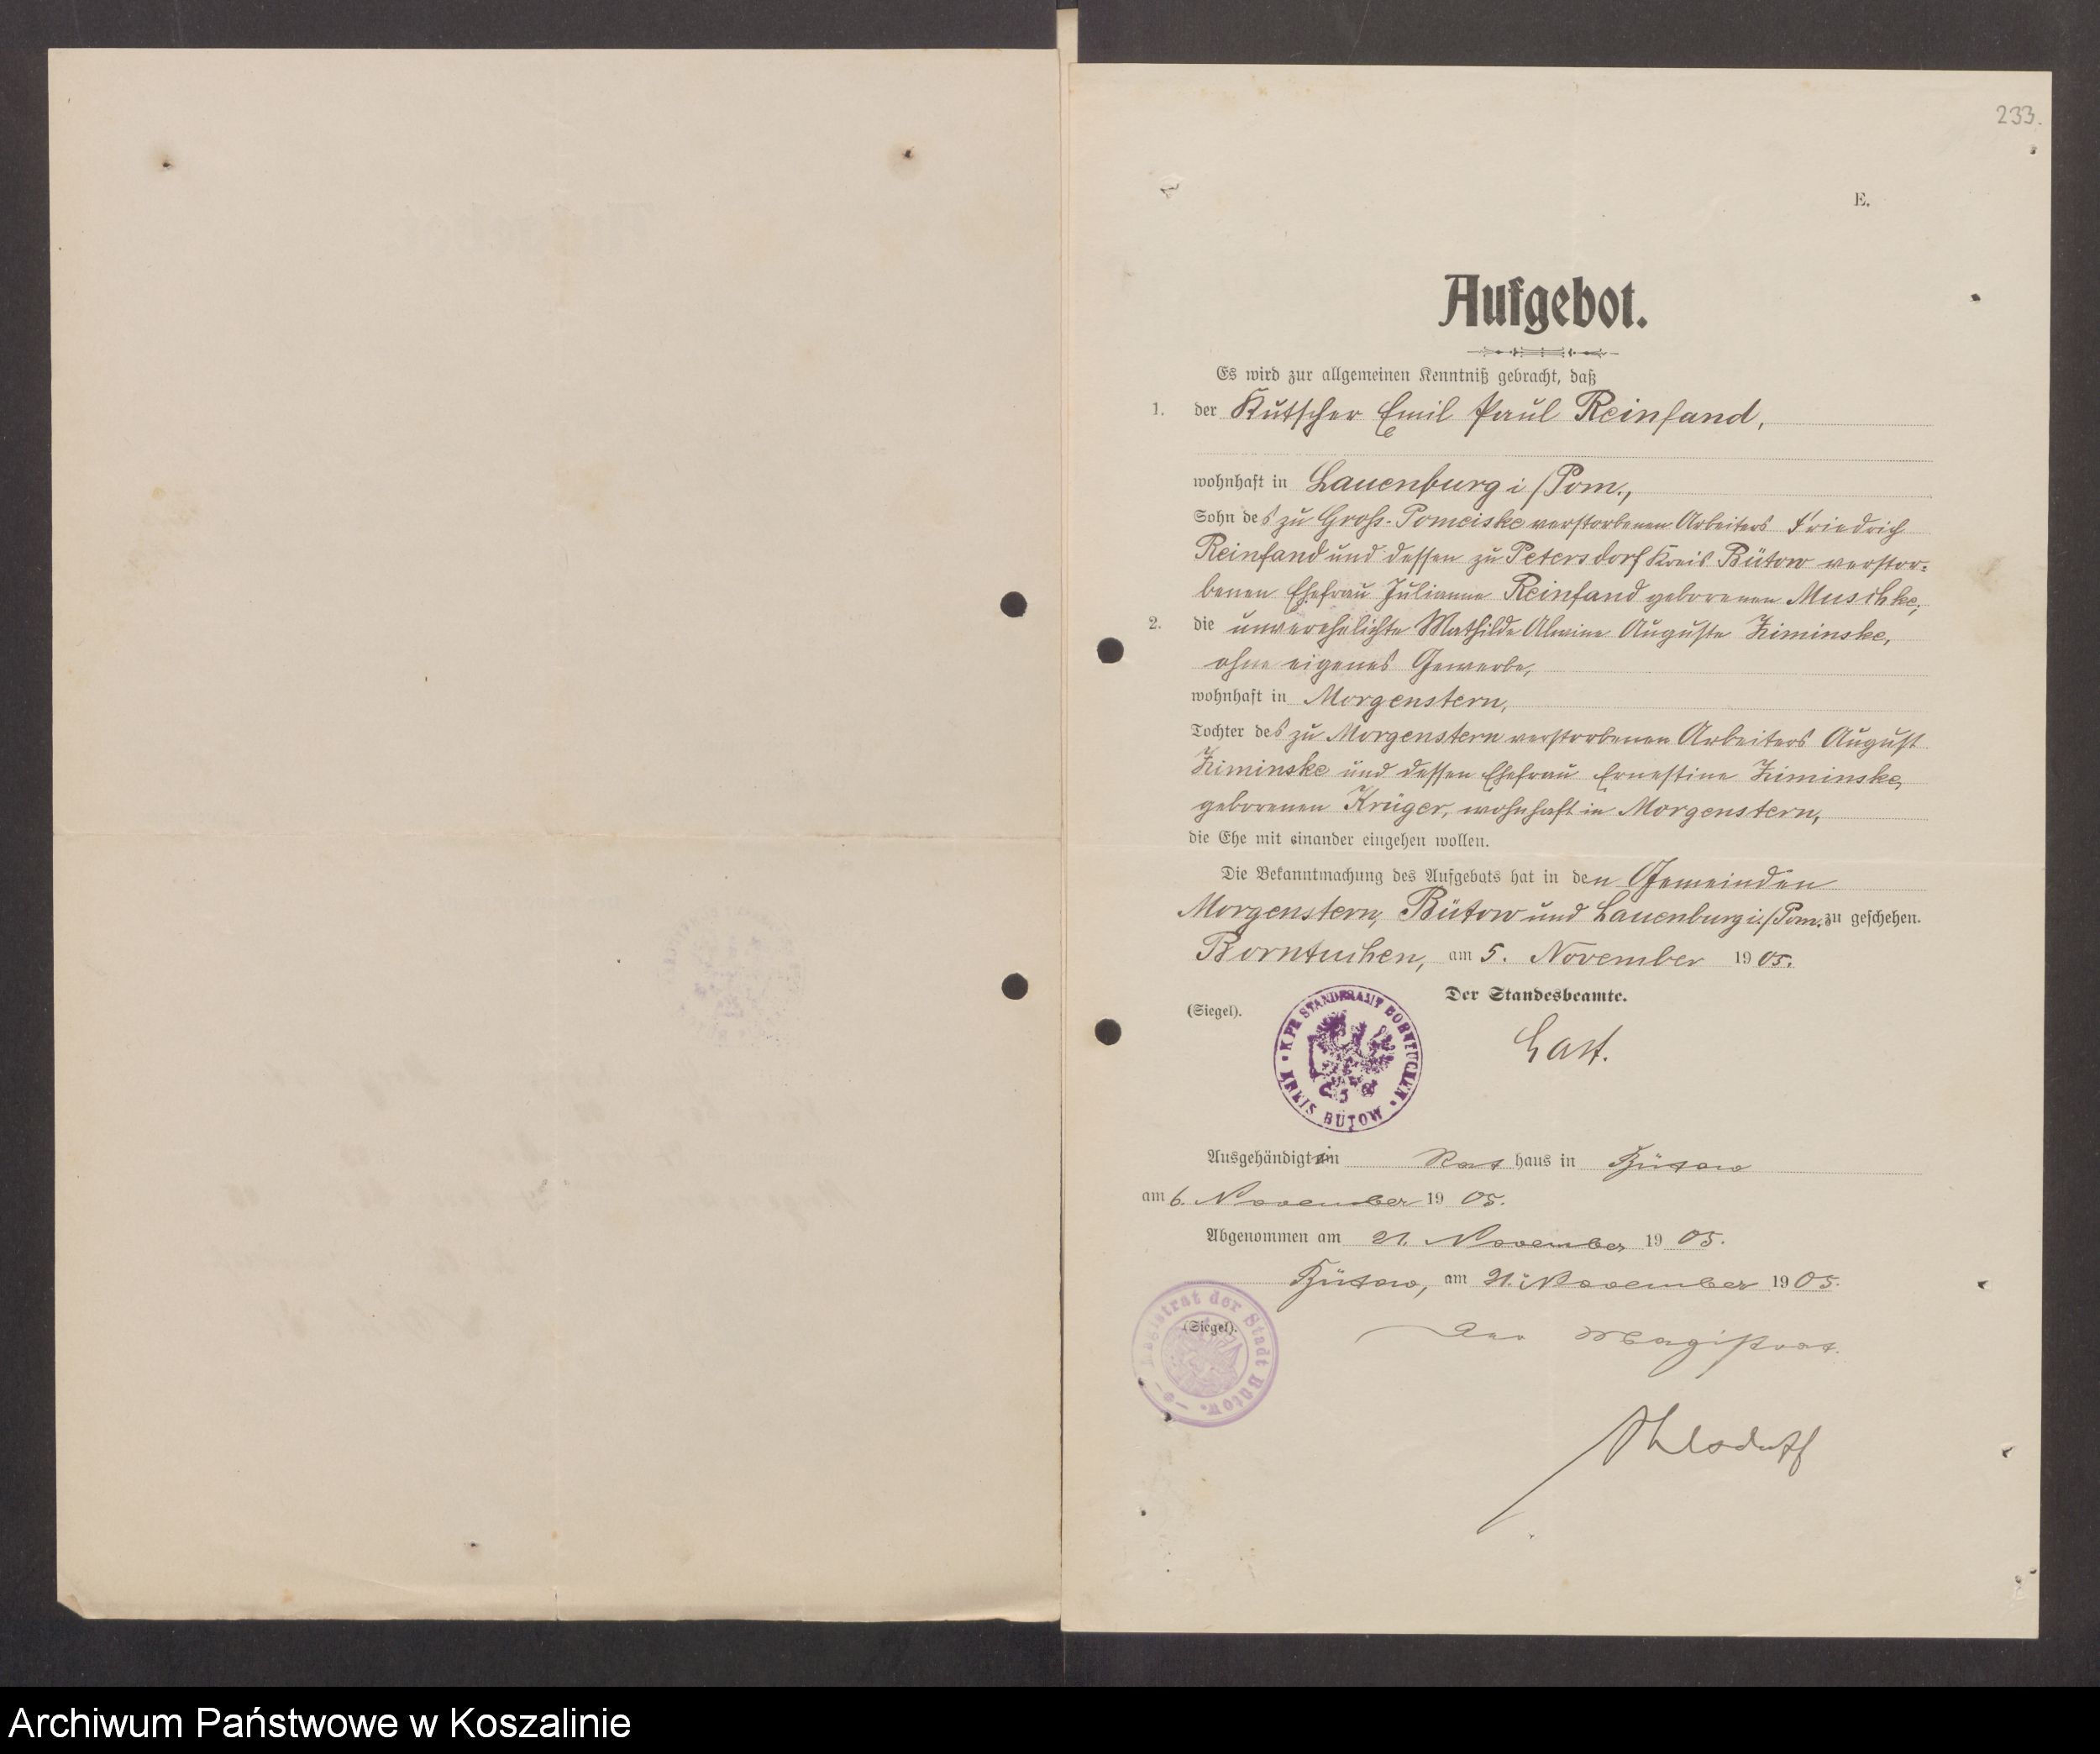 233.
E.
Aufgebot.
Es wird zur allgemeinen Kenntniß gebracht, daß
1. der Kutscher Emil Paul Reinfand,
wohnhaft in Lauenburg i/Pom.,
Sohn des zu Groß-Pomeiske verstorbenen Arbeiters Friedrich
Reinfand und dessen zu Petersdorf Kreis Bütow verstor-
benen Ehefrau Julianne Reinfand geborenen Muschke,
2. die unverehelichte Mathilde Alwine Auguste Ziminske,
ohne eigenes Gewerbe,
wohnhaft in Morgenstern,
Tochter des zu Morgenstern verstorbenen Arbeiters August
Ziminske und dessen Ehefrau Ernestine Ziminske,
geborenen Krüger, wohnhaft in Morgenstern,
die Ehe mit einander eingehen wollen.
Die Bekanntmachung des Aufgebots hat in den Gemeinden
Morgenstern, Bütow und Lauenburg i./Pom. zu geschehen.
Borntuchen, am 5. November 1905.
Der Standesbeamte.
(Siegel).
K. PR. STANDESAMT BORNTUCHEN • KREIS BÜTOW •
Last.
Ausgehändigt im Rathaus in Bütow
am 6. November 1905.
Abgenommen am 21. November 1905.
Bütow, am 21. November 1905.
(Siegel).
Magistrat der Stadt Bütow.
Der Magistrat.
Archiwum Państwowe w Koszalinie